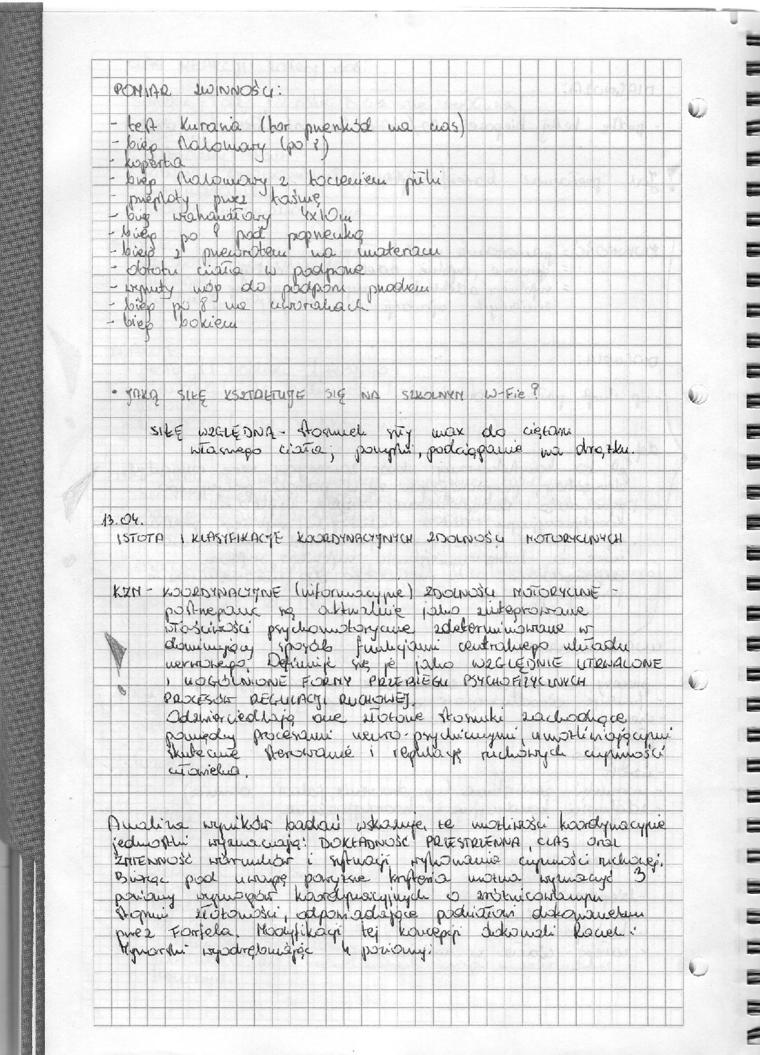 POMIAR ZWINNOŚCI:
- test Kurania (tor przeszkód na czas)
- bieg slalomowy (po 8)
- koperta
- bieg slalomowy z toczeniem piłki
- przeploty przez taśmę
- bieg wahadłowy 4x10m
- bieg po 8 pod poprzeczką
- bieg z przewrotem na materacu
- obrotu ciała w podporze
- wyrzuty nóg do podporu przodem
- bieg po 8 na czworakach
- bieg bokiem
• JAKĄ SIŁĘ KSZTAŁTUJE SIĘ NA SZKOLNYM W-Fie?
SIŁĘ WZGLĘDNĄ - stosunek siły max do ciężaru
własnego ciała; pompki, podciąganie na drążku.
13.04.
ISTOTA I KLASYFIKACJE KOORDYNACYJNYCH ZDOLNOŚCI MOTORYCZNYCH
KZM - KOORDYNACYJNE (informacyjne) ZDOLNOŚCI MOTORYCZNE -
postrzegane są aktualnie jako zintegrowane
właściwości psychomotoryczne zdeterminowane w
dominujący sposób funkcjami centralnego układu
nerwowego. Definiuje się je jako WZGLĘDNIE UTRWALONE
I UOGÓLNIONE FORMY PRZEBIEGU PSYCHOFIZYCZNYCH
PROCESÓW REGULACJI RUCHOWEJ.
Odzwierciedlają one złożone stosunki zachodzące
pomiędzy procesami neuro-psychicznymi, umożliwiającymi
skuteczne sterowanie i regulację ruchowych czynności
człowieka.
Analiza wyników badań wskazuje, że możliwości koordynacyjne
jednostki wyznaczają: DOKŁADNOŚĆ PRZESTRZENNA, CZAS oraz
ZMIENNOŚĆ warunków i sytuacji wykonania czynności ruchowej.
Biorąc pod uwagę powyższe kryteria można wyznaczyć 3
poziomy wymogów koordynacyjnych o zróżnicowanym
stopniu złożoności, odpowiadające podziałowi dokonanemu
przez Farfela. Modyfikacji tej koncepcji dokonali Raczek i
Mynarski wyodrębniając 4 poziomy: